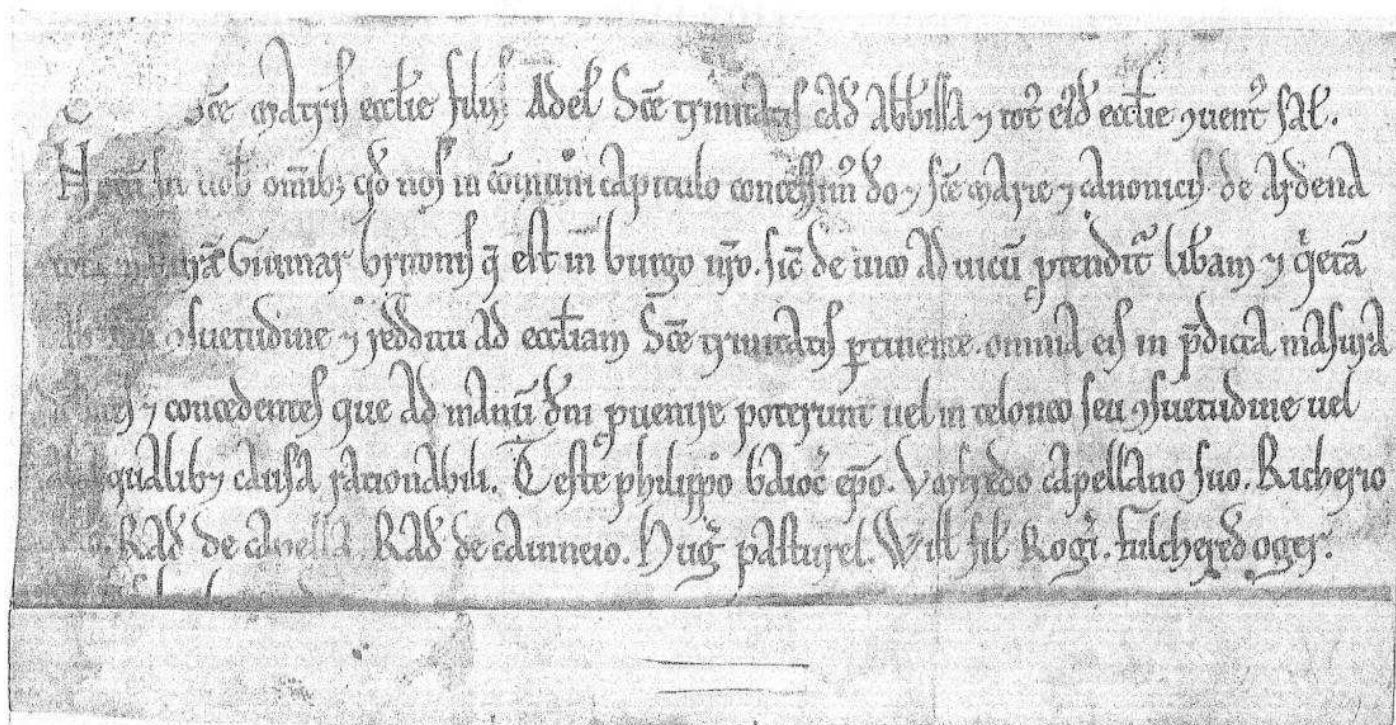 Sc̄e matris ecctie filiis Adel' Sc̄e trinitatis cad' abb'issa ⁊ tot' ei'd ecctie ꝯuent' sal'.
uob' omnib; qd' nos in cōmuni capitulo concessim' do ⁊ sc̄e marie ⁊ canonicis de ardena
Guimar brittonis q̄ est in burgo nr̄o. sic̄ de uico ad uicū ptendit' lib'am ⁊ qietā
ꝯsuetudine ⁊ redditu ad eccliam Sc̄e trinitatis ꝑtinente. omnia eis in p̄dicta masura
⁊ concedentes que ad manū dn̄i ꝓuenire poterunt uel in teloneo seu ꝯsuetudine uel
qualib; causa rationabili. Teste philippo baioc' ep̄o. capellano suo. Richerio
Rad' de capella. Rad' de cainneio. Hug' pasturel. Will' fil' Rog'i. fulchered' oger.